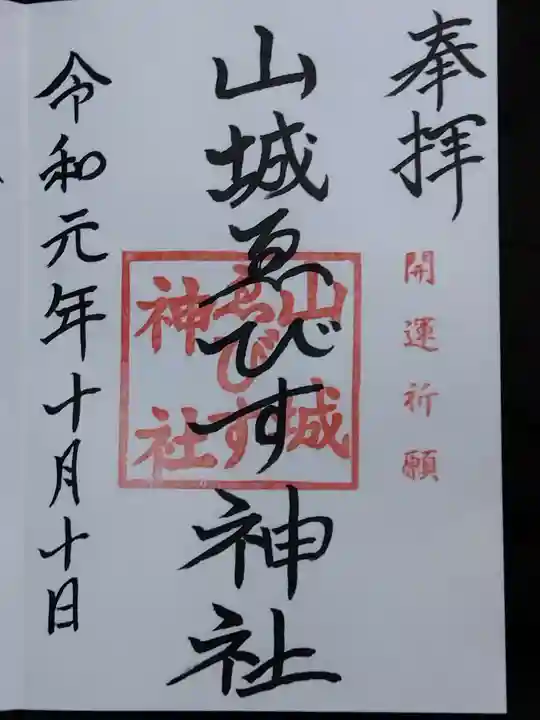 奉拝
開運祈願
山城ゑびす神社
山城
ゑびす
神社
令和元年十月十日